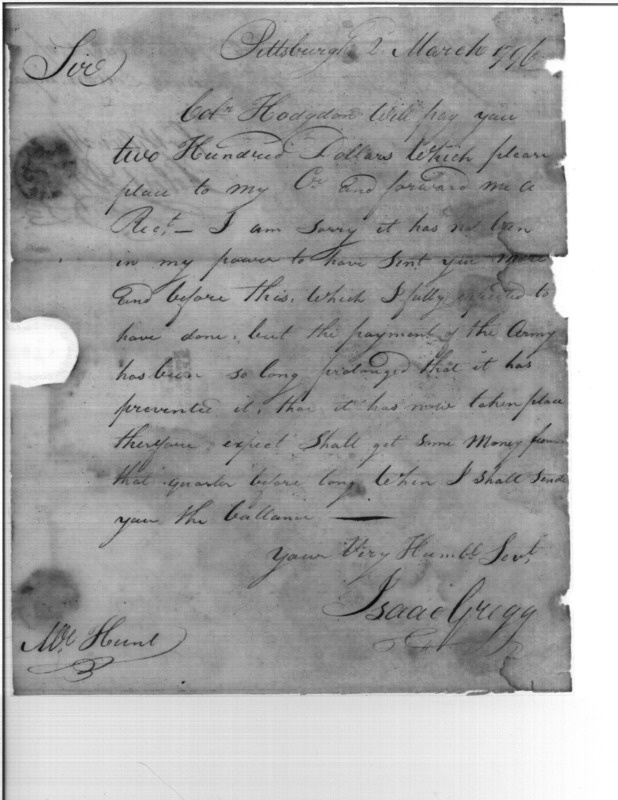 Pittsburgh 2 March 1796
Sir
Colo. Hodgdon Will pay you
two Hundred Dollars Which please
place to my Cr. and forward me a
Rect. — I am sorry it has not been
in my power to have Sent you more
and before this, Which I fully expected to
have done, but the payment of the Army
has been so long prolonged that it has
prevented it, that it has now taken place
therefore expect Shall get some Money from
that quarter before long When I shall Send
you the ballance —
Your Very Humbl. Servt.
Isaac Gregg
Mr. Hunt